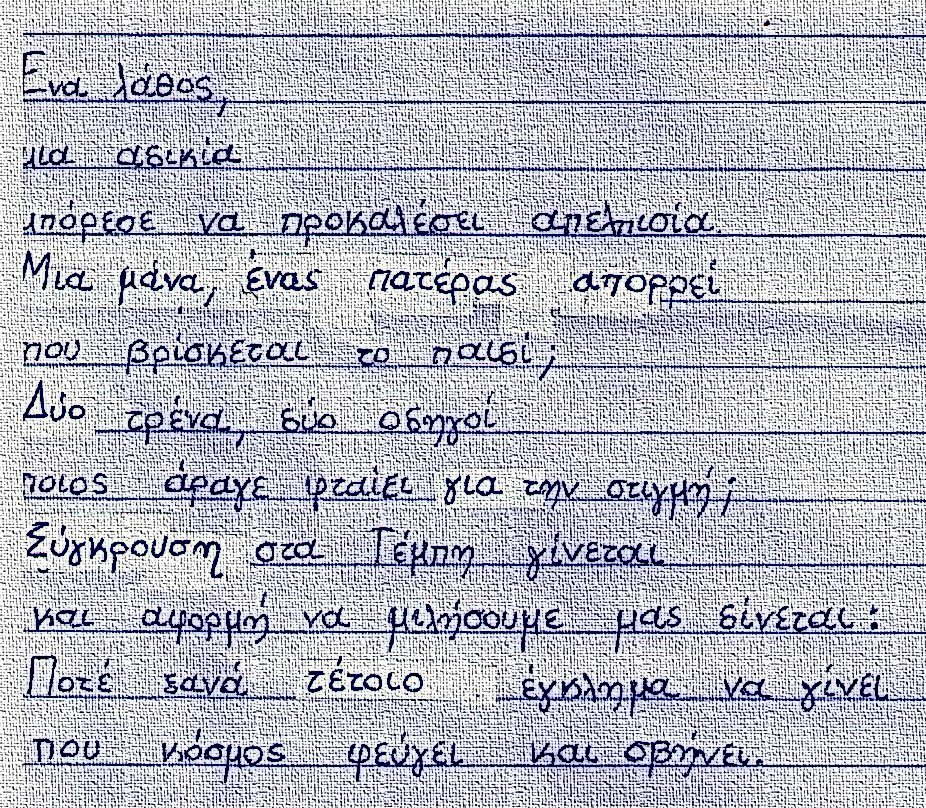 Ένα λάθος,
μια αδικία
μπόρεσε να προκαλέσει απελπισία.
Μια μάνα, ένας πατέρας απορρεί
που βρίσκεται το παιδί;
Δύο τρένα, δύο οδηγοί
ποιος άραγε φταίει για την στιγμή;
Σύγκρουση στα Τέμπη γίνεται
και αφορμή να μιλήσουμε μας δίνεται:
Ποτέ ξανά τέτοιο έγκλημα να γίνει
που κόσμος φεύγει και σβήνει.